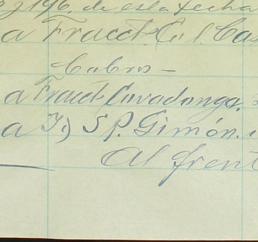 196. de esta fecha
a Fracct. C. l. Cas
Cobros —
a Fracct. Covadonga.
a T.) S P. Gimón.
Al frent